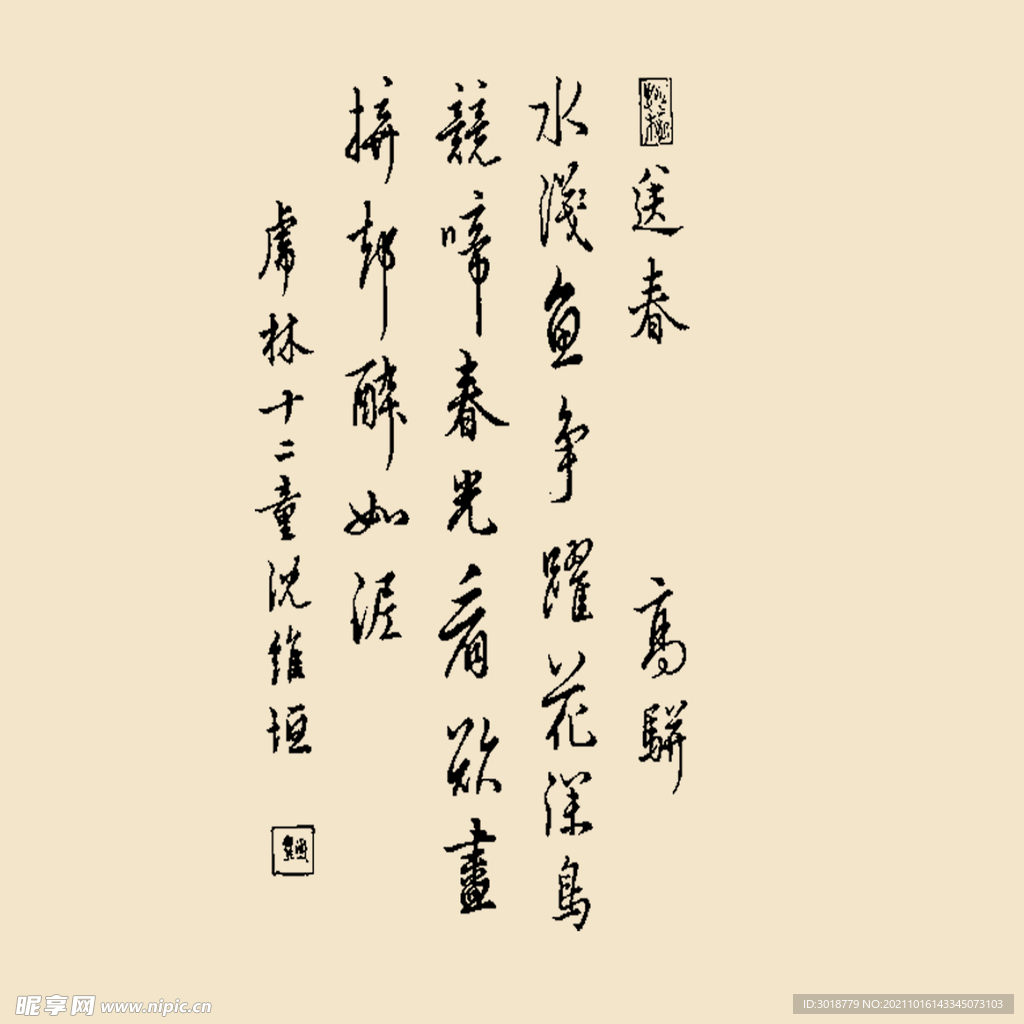 送春 高駢
水淺鱼争躍花深鳥
競啼春光看欲盡
拚却醉如泥
虎林十二童沈維垣
昵享网 www.nipic.cn
ID:3018779 NO:20211016143345073103